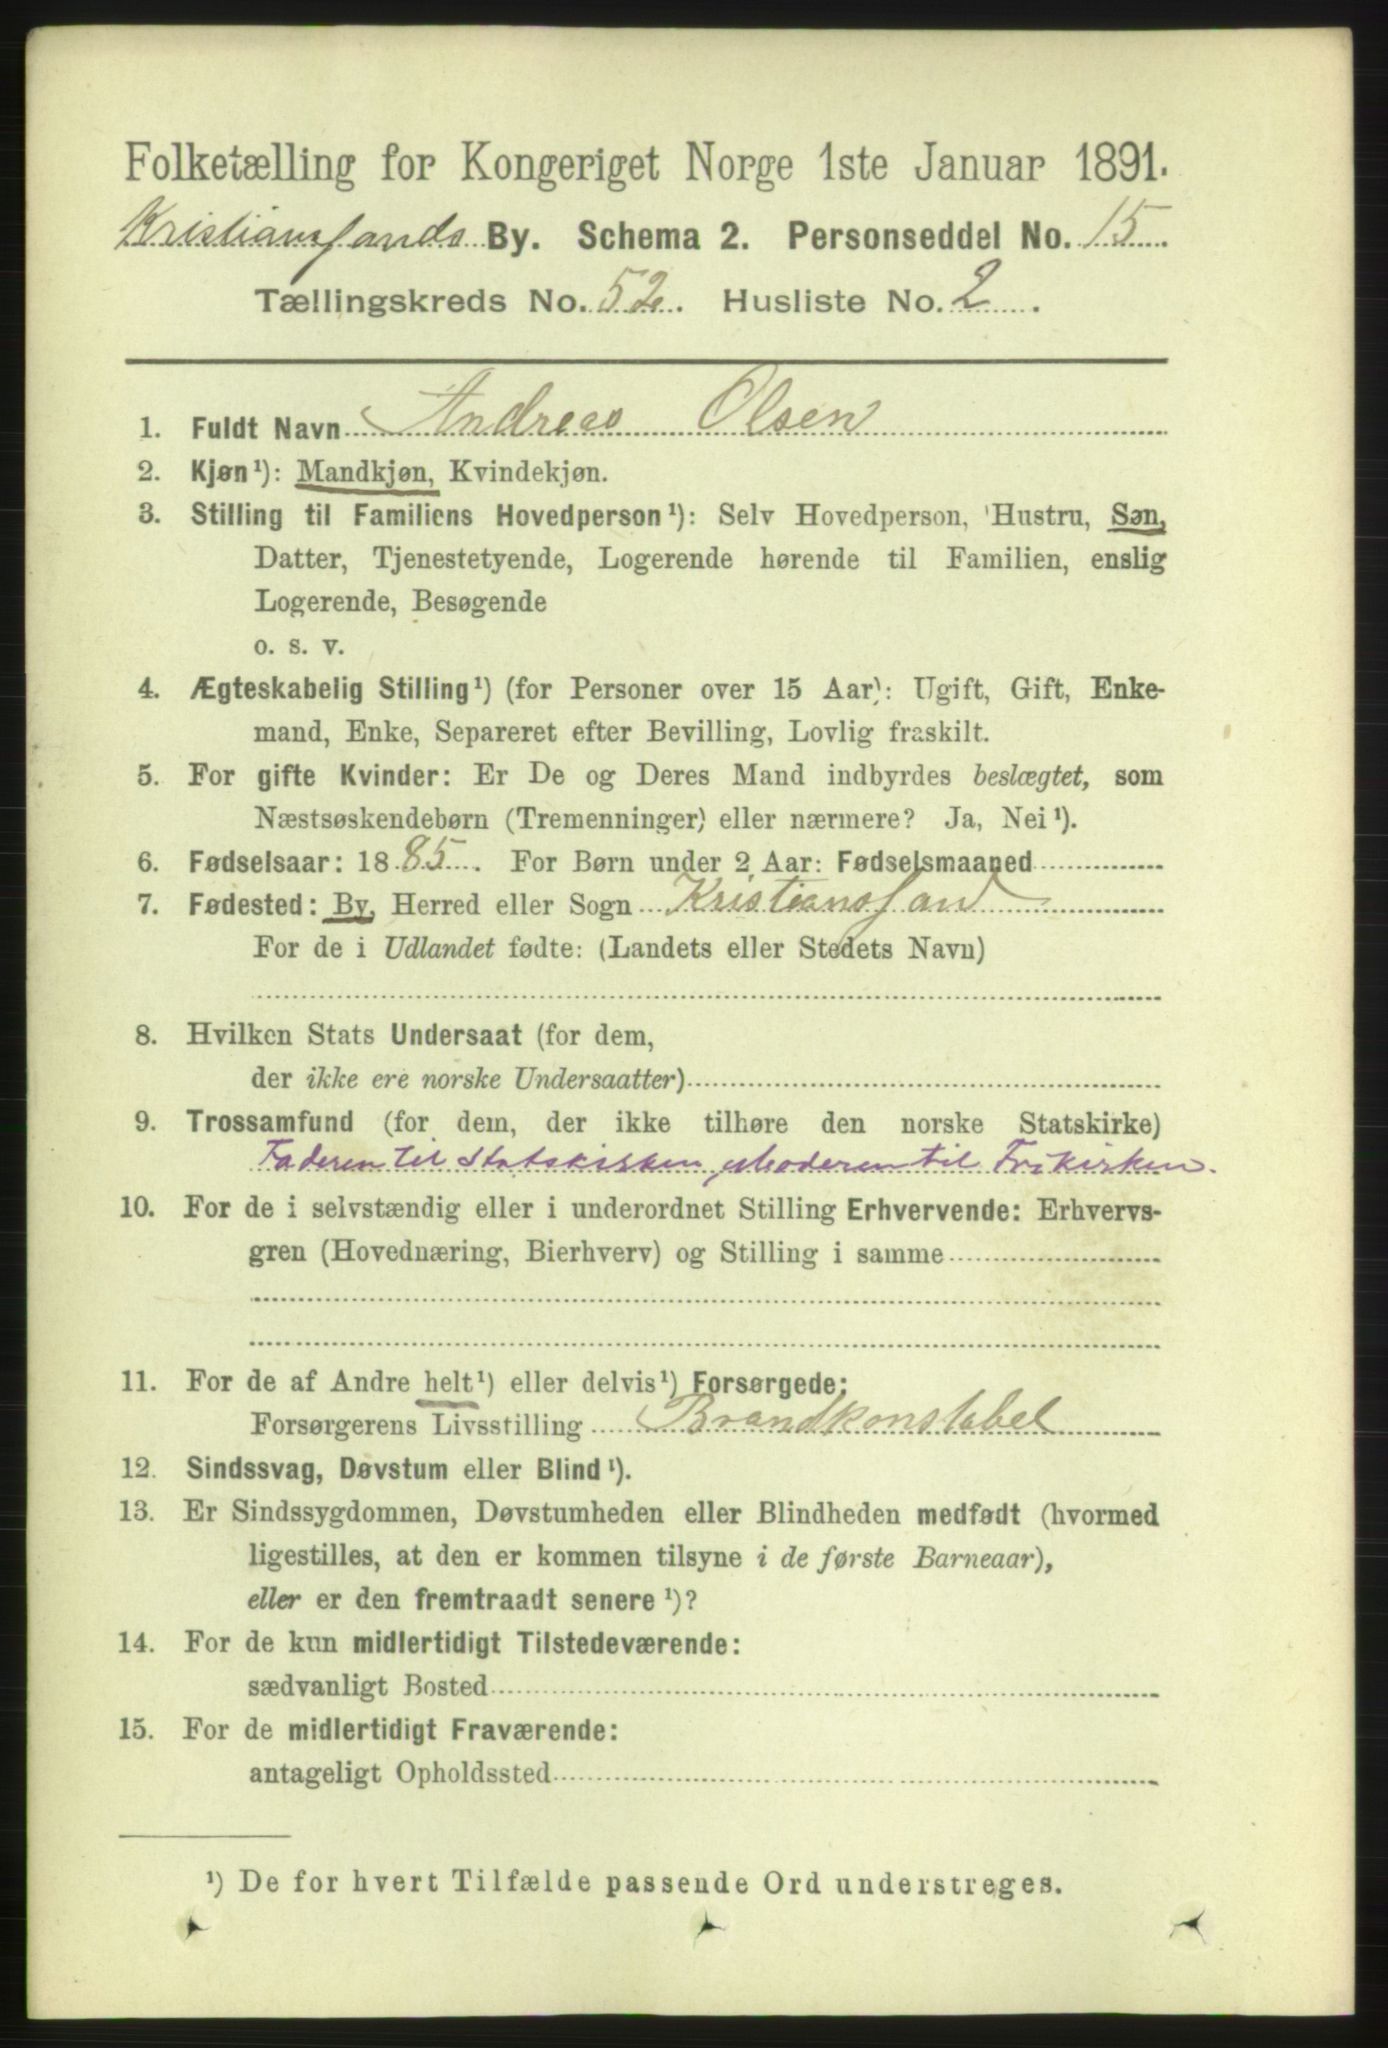 Folketælling for Kongeriget Norge 1ste Januar 1891.
Kristianssands By. Schema 2. Personseddel No. 15
Tællingskreds No. 52. Husliste No. 2.
1. Fuldt Navn Andreas Olsen
2. Kjøn¹): Mandkjøn, Kvindekjøn.
3. Stilling til Familiens Hovedperson¹): Selv Hovedperson, Hustru, Søn,
Datter, Tjenestetyende, Logerende hørende til Familien, enslig
Logerende, Besøgende
o. s. v.
4. Ægteskabelig Stilling¹) (for Personer over 15 Aar): Ugift, Gift, Enke-
mand, Enke, Separeret efter Bevilling, Lovlig fraskilt.
5. For gifte Kvinder: Er De og Deres Mand indbyrdes beslægtet, som
Næstsøskendebørn (Tremenninger) eller nærmere? Ja, Nei¹).
6. Fødselsaar: 1885. For Børn under 2 Aar: Fødselsmaaned
7. Fødested: By, Herred eller Sogn Kristianssand
For de i Udlandet fødte: (Landets eller Stedets Navn)
8. Hvilken Stats Undersaat (for dem,
der ikke ere norske Undersaatter)
9. Trossamfund (for dem, der ikke tilhøre den norske Statskirke)
Faderen til Statskirken, Moderen til Frikirken.
10. For de i selvstændig eller i underordnet Stilling Erhvervende: Erhvervs-
gren (Hovednæring, Bierhverv) og Stilling i samme
11. For de af Andre helt¹) eller delvis¹) Forsørgede:
Forsørgerens Livsstilling Brandkonstabel
12. Sindssvag, Døvstum eller Blind¹).
13. Er Sindssygdommen, Døvstumheden eller Blindheden medfødt (hvormed
ligestilles, at den er kommen tilsyne i de første Barneaar),
eller er den fremtraadt senere¹)?
14. For de kun midlertidigt Tilstedeværende:
sædvanligt Bosted
15. For de midlertidigt Fraværende:
antageligt Opholdssted
¹) De for hvert Tilfælde passende Ord understreges.